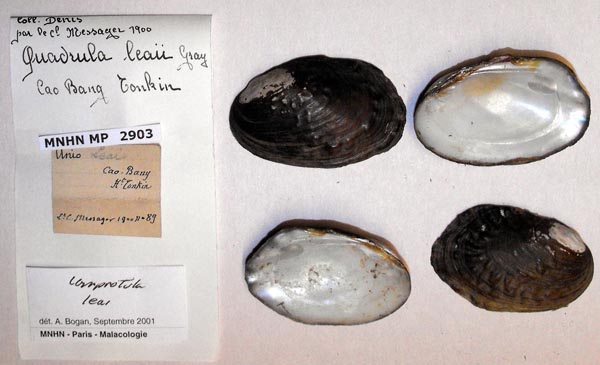 Coll. Denis
par le Cl. Messager 1900
Quadrula leaii Gray
Cao Bang Tonkin
MNHN MP 2903
Unio Leai
Cao-Bang
Ht Tonkin
Lt C. Messager 1900 n° 89
Lamprotula
leai
dét. A. Bogan, Septembre 2001
MNHN - Paris - Malacologie